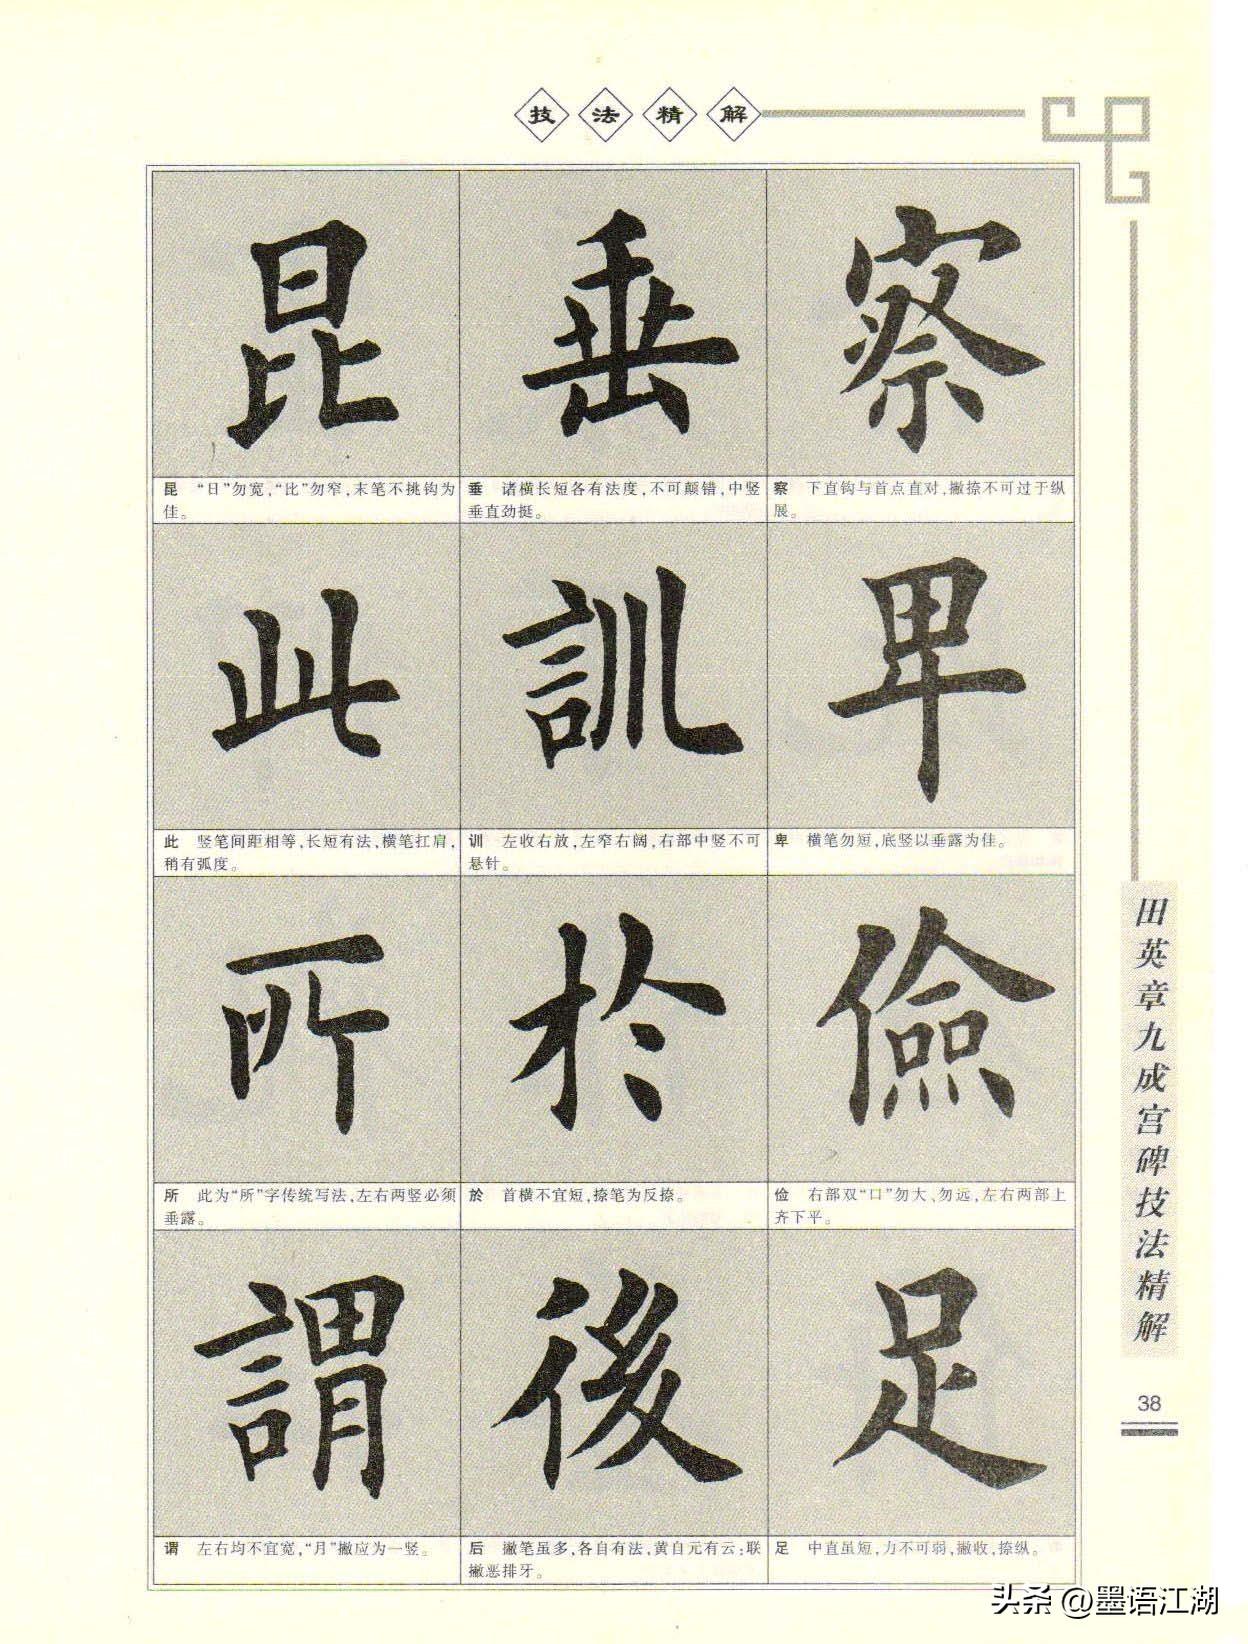 技法精解
昆
垂
察
昆 “日”勿宽，“比”勿窄，末笔不挑钩为
佳。
垂 诸横长短各有法度，不可颠错，中竖
垂直劲挺。
察 下直钩与首点直对，撇捺不可过于纵
展。
此
訓
卑
此 竖笔间距相等，长短有法，横笔扛肩，
稍有弧度。
训 左收右放，左窄右阔，右部中竖不可
悬针。
卑 横笔勿短，底竖以垂露为佳。
所
於
儉
所 此为“所”字传统写法，左右两竖必须
垂露。
於 首横不宜短，捺笔为反捺。
俭 右部双“口”勿大、勿远，左右两部上
齐下平。
謂
後
足
谓 左右均不宜宽，“月”撇应为一竖。
后 撇笔虽多，各自有法，黄自元有云：联
撇恶排牙。
足 中直虽短，力不可弱，撇收，捺纵。
田英章九成宫碑技法精解
38
头条 @墨语江湖